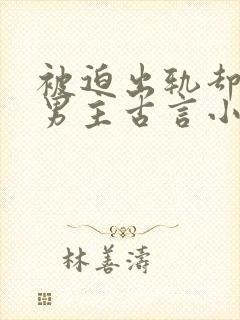 被迫出轨却
男主古言小
林善涛